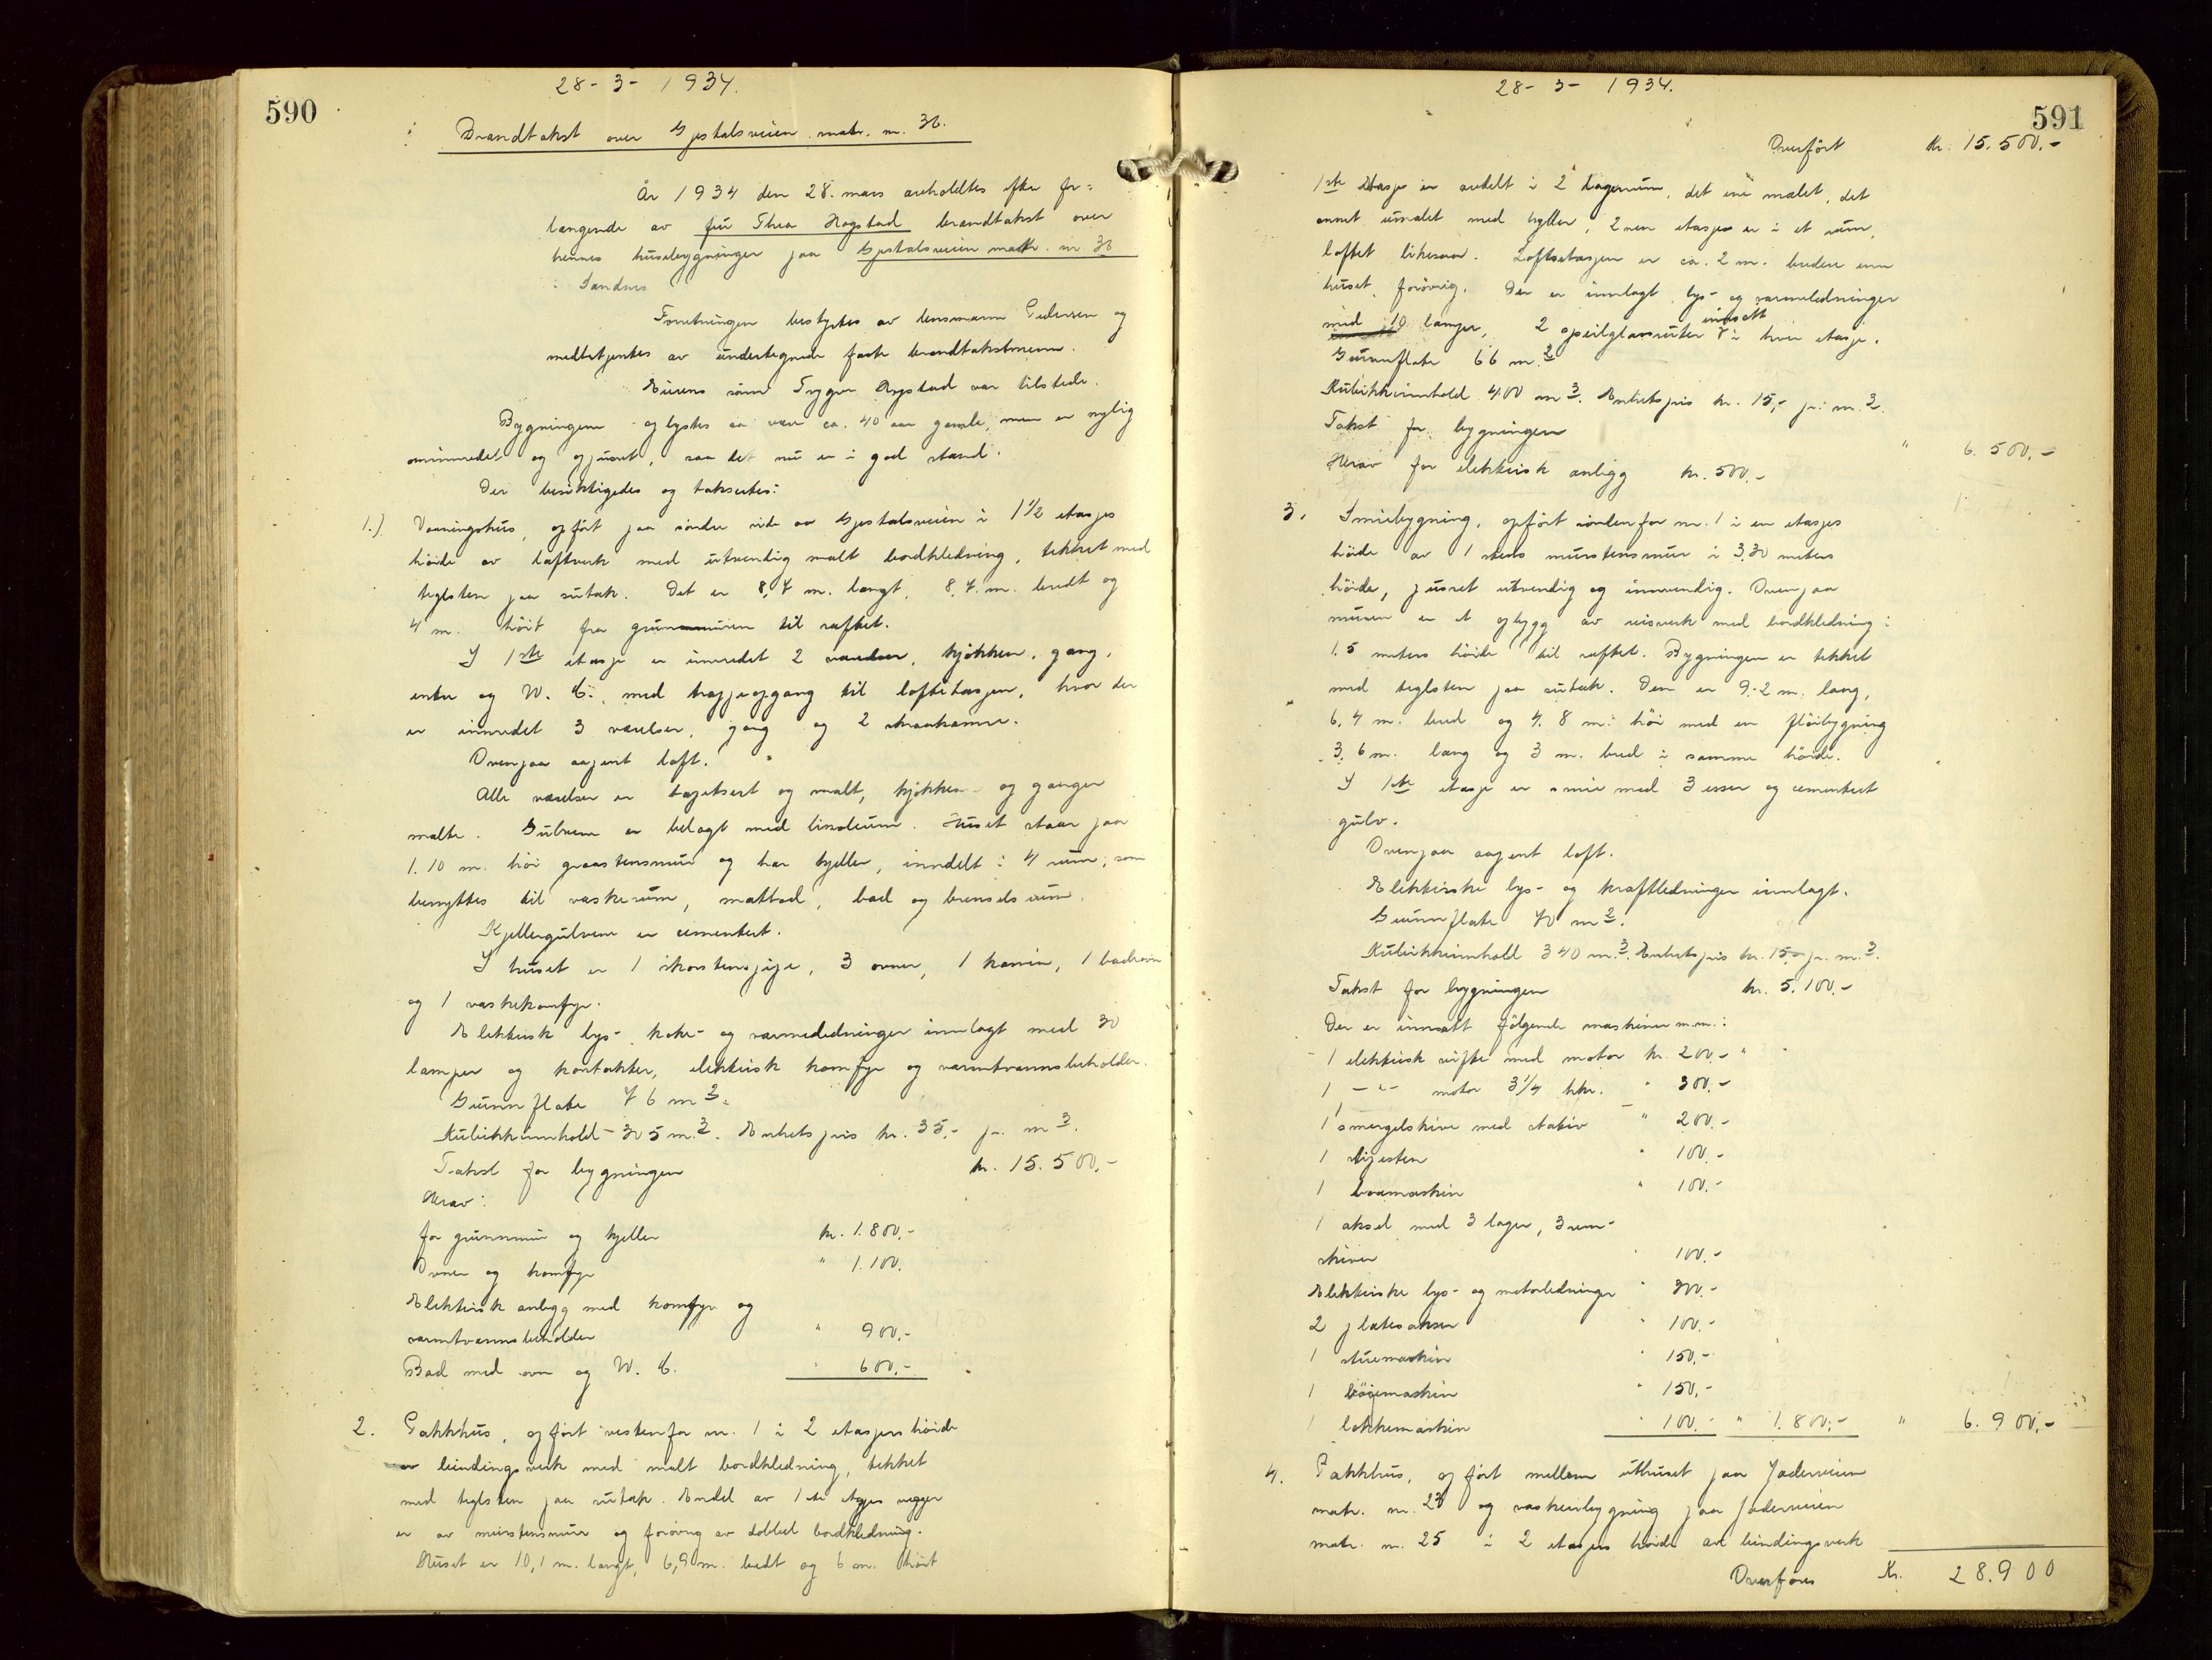 590
28-3-1934.
Brandtakst over Gjestalsveien matr. nr. 36.
År 1934 den 28. mars avholdtes efter for=
langende av fru Thea Hogstad brandtakst over
hennes husebygninger paa Gjestalsveien matr. nr. 36
i Sandnes
Forretningen bestyrtes av lensmann Pedersen og
medbetjentes av undertegnede faste brandtakstmenn.
Eierens sønn Trygve Hogstad var tilstede.
Bygningene oplystes aa være ca. 40 aar gamle, men er nylig
ominnredet og opusset, saa det nu er i god stand.
Der besiktigedes og takseertes:
1.) Vaaningshus, opført paa søndre side av Gjestalsveien i 1 1/2 etasjes
høide av laftverk med utvendig malt bordkledning, tekket med
teglsten paa sutak. Det er 8,7 m. langt, 8,7. m. bredt og
4 m. høit fra grunnmuren til raftet.
I 1ste etasje er innredet 2 værelser, kjøkken, gang,
entre og W. C. med trappeopgang til loftetasjen, hvor der
er innredet 3 værelser, gang og 2 skraakamre.
Ovenpaa aapent loft.
Alle værelser er tapetsert og malt, kjøkken og ganger
malte. Gulvene er belagt med linoleum. Huset staar paa
1.10 m. høi graastensmur og har kjeller, inndelt i 4 rum, som
benyttes til vaskerum, matbod, bad og brenselsrum.
Kjellergulvene er cementert.
I huset er 1 skorstenspipe, 3 ovner, 1 kamin, 1 badeovn
og 1 vaskekomfyr.
Elektrisk lys-, koke- og varmeledninger innlagt med 30
lamper og kontakter, elektrisk komfyr og varmtvannsbeholder.
Grunnflate 76 m2.
Kubikkinnhold 305 m.3. Enhetspris kr. 35,- pr. m3.
Takst for bygningen kr. 15.500,-
Herav:
for grunnmur og kjeller kr. 1.800,-
Ovner og komfyr " 1.100.
Elektrisk anlegg med komfyr og
varmtvannsbeholder " 900,-
Bad med ovn og W. C. " 600,-
2. Pakkhus, opført vestenfor nr. 1 i 2 etasjers høide
av bindingsverk med malt bordkledning, tekket
med teglsten paa sutak. Endel av 1ste etasjes vegger
er av murstensmur og forøvrig av dobbel bordkledning.
Huset er 10,1 m. langt, 6,9 m. bredt og 6 m. høit
591
28-3-1934.
Overført kr. 15.500,-
1ste etasje er avdelt i 2 lagerrum, det ene malet, det
annet umalet med hyller, 2nen etasje er i et rum,
loftet likesaa. Loftsetasjen er ca. 2 m. bredere enn
huset forøvrig. Der er innlagt lys- og varmeledninger
med 10 lamper, 2 speilglassruter innsatt i hver etasje.
Grunnflate 66 m.2
Kubikkinnhold 400 m3. Enhetspris kr. 15,- pr. m.3.
Takst for bygningen " 6.500,-
Herav for elektrisk anlegg kr. 500,-
3. Smiebygning, opført søndenfor nr. 1 i en etasjes
høide av 1 stens murstensmur i 3.30 meters
høide, pusset utvendig og innvendig. Ovenpaa
muren er et opbygg av reisverk med bordkledning i
1.5 meters høide til raftet. Bygningen er tekket
med teglsten paa sutak. Den er 9.2 m. lang,
6.4 m. bred og 4.8 m. høi med en fløibygning
3.6 m. lang og 3 m. bred i samme høide.
I 1ste etasje er smie med 3 esser og cementert
gulv.
Ovenpaa aapent loft.
Elektriske lys- og kraftledninger innlagt.
Grunnflate 70 m2.
Kubikkinnhold 340 m.3. Enhetspris kr. 15,- pr. m.3.
Takst for bygningen kr. 5.100,-
Der er innsatt følgende maskiner m.m.:
1 elektrisk vifte med motor kr. 200,- "
1 -"- motor 3 1/4 hkr. " 300,-
1 smergelskive med stativ " 200,-
1 slipesten " 100,-
1 boremaskin " 100,-
1 aksel med 3 lager, 3 rem-
skiver " 100,-
Elektriske lys- og motorledninger " 300,-
2 platesakser " 100,-
1 stuemaskin " 150,-
1 bøiemaskin " 150,-
1 lokkemaskin " 100,- " 1.800,- " 6.900,-
4. Pakkhus, opført mellem uthuset paa Jæderveien
matr. nr. 23 og vaskeribygning paa Jæderveien
matr. nr. 25 i 2 etasjers høide av bindingsverk
Overføres Kr. 28.900